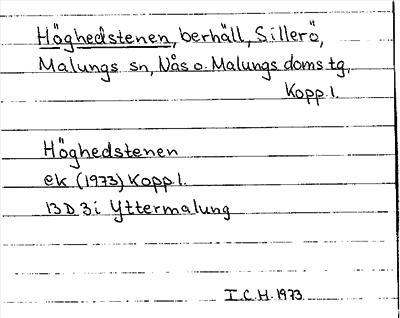 Höghedstenen, berhäll, Sillerö,
Malungs sn, Nås o. Malungs domstg,
Kopp l.
Höghedstenen
ek (1973) Kopp l.
13D 3i Yttermalung
I.C.H. 1973